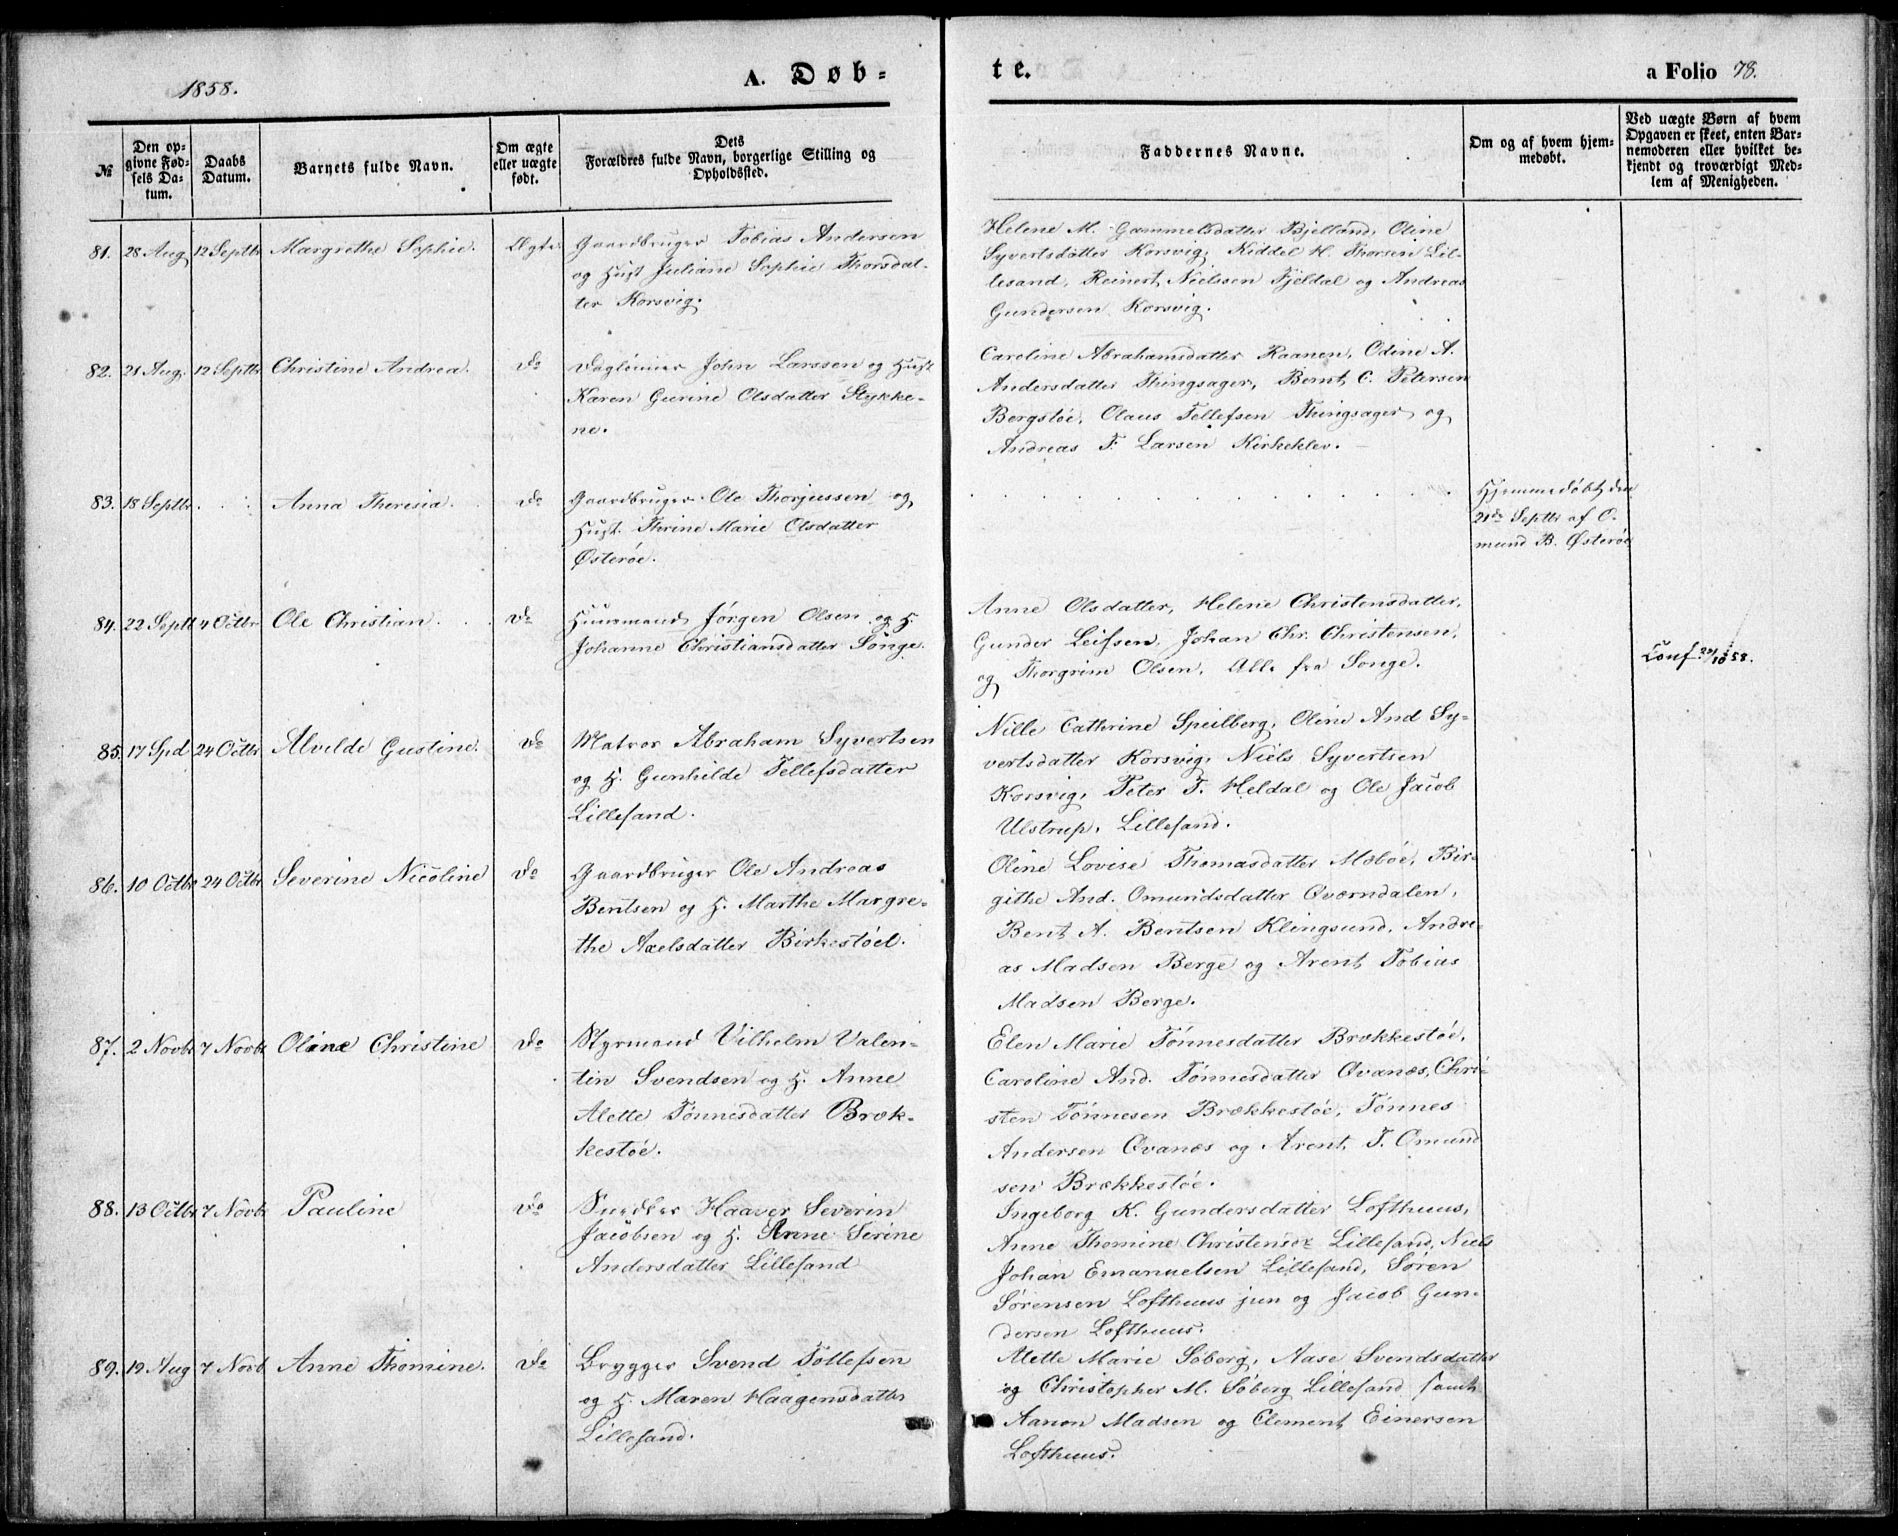 1858.
A. Døb=
te.
a Folio 78.
№
Den op-
givne Fød-
sels Da-
tum.
Daabs
Datum.
Barnets fulde Navn.
Om ægte
eller uægte
født.
Dets
Forældres fulde Navn, borgerlige Stilling og
Opholdssted.
Faddernes Navne.
Om og af hvem hjem-
medøbt.
Ved uægte Børn af hvem
Opgaven er skeet, enten Bar-
nemoderen eller hvilket be-
kjendt og troværdigt Med-
lem af Menigheden.
81. 28 Aug 12 Septbr Margrethe Sophie. Ægte
Gaardbruger Tobias Andersen
og Hust Juliane Sophie Thorsdat-
ter Korsvig.
Helene M. Gammelsdatter Bjelland, Oline
Syvertsdatter Korsvig, Kiddel H. Thorsen Lil-
lesand, Reinert Nielssen Fjeldal og Andreas
Gundersen Korsvig.
82. 21 Aug. 12 Septbr Christine Andrea. do
Dagleiner John Larssen og Hust
Karen Gurine Olsdatter Stykke-
ne.
Caroline Abrahamsdatter Raanen, Odine A.
Andersdatter Thingsager, Bernt C. Petersen
Bergstøe, Olaus Tellefsen Thingsager og
Andreas F. Larsen Kirkeklev.
83. 18 Septbr Anna Theresia. do
Gaardbruger Ole Thorjussen og
Hust. Thrine Marie Olsdatter
Østerøe.
Hjemmedøbt den
21de Septbr af O-
mund B. Østerøe
84. 22 Septb 4 Octbr Ole Christian. do
Huusmand Jørgen Olsen og H.
Johanne Christiansdatter Songe.
Anne Olsdatter, Helene Christensdatter,
Gunder Leifsen, Johan Chr. Christensen,
og Thorgrim Olsen, Alle fra Songe.
Conf. 58.
85. 17 Spd 24 Octbr Alvilde Gustine. do
Matros Abraham Syvertsen
og H. Gunhilde Tellefsdatter
Lillesand.
Nille Cathrine Speilberg, Oline And Sy-
vertsdatter Korsvig, Niels Syvertsen
Korsvig, Peter T. Heldal og Ole Jacob
Ulstrup, Lillesand.
86. 10 Octbr 24 Octbr Severine Nicoline do
Gaardbruger Ole Andreas
Bentsen og H. Marthe Margre-
the Axelsdatter Birkestøel.
Oline Lovise Thomasdatter Mebøe, Bir-
githe And. Omundsdatter Qværndalen,
Bent A. Bentsen Klingsund, Andre-
as Madsen Berge og Arent Tobias
Madsen Berge.
87. 2 Novbr 7 Novbr Oline Christine do
Styrmand Vilhelm Valen-
tin Svendsen og H. Anne
Alette Tønnesdatter Bræk-
kestøe.
Elen Marie Tønnesdatter Brækkestøe,
Caroline And. Tønnesdatter Qvanæs, Chri-
sten Tønnesen Brækkestøe, Tønnes
Andersen Qvanæs og Arent T. Omund
sen Brækkestøe.
88. 13 Octbr 7 Novbr Pauline do
Snedker Haaver Severin
Jacobsen og H. Anne Serine
Andersdatter Lillesand
Ingeborg K. Gundersdatter Lofthuus,
Anne Thomine Christensdr Lillesand, Niels
Johan Emanuelsen Lillesand, Søren
Sørensen Lofthuus jun og Jacob Gun-
dersen Lofthuus.
89. 19 Aug 7 Novb Anne Thomine. do
Brygger Svend Tollefsen
og H. Maren Haagensdatter
Lillesand.
Alette Marie Søberg, Aase Svendsdatter
og Christopher M. Søberg Lillesand samt
Aanon Madsen og Clement Einersen
Lofthuus.